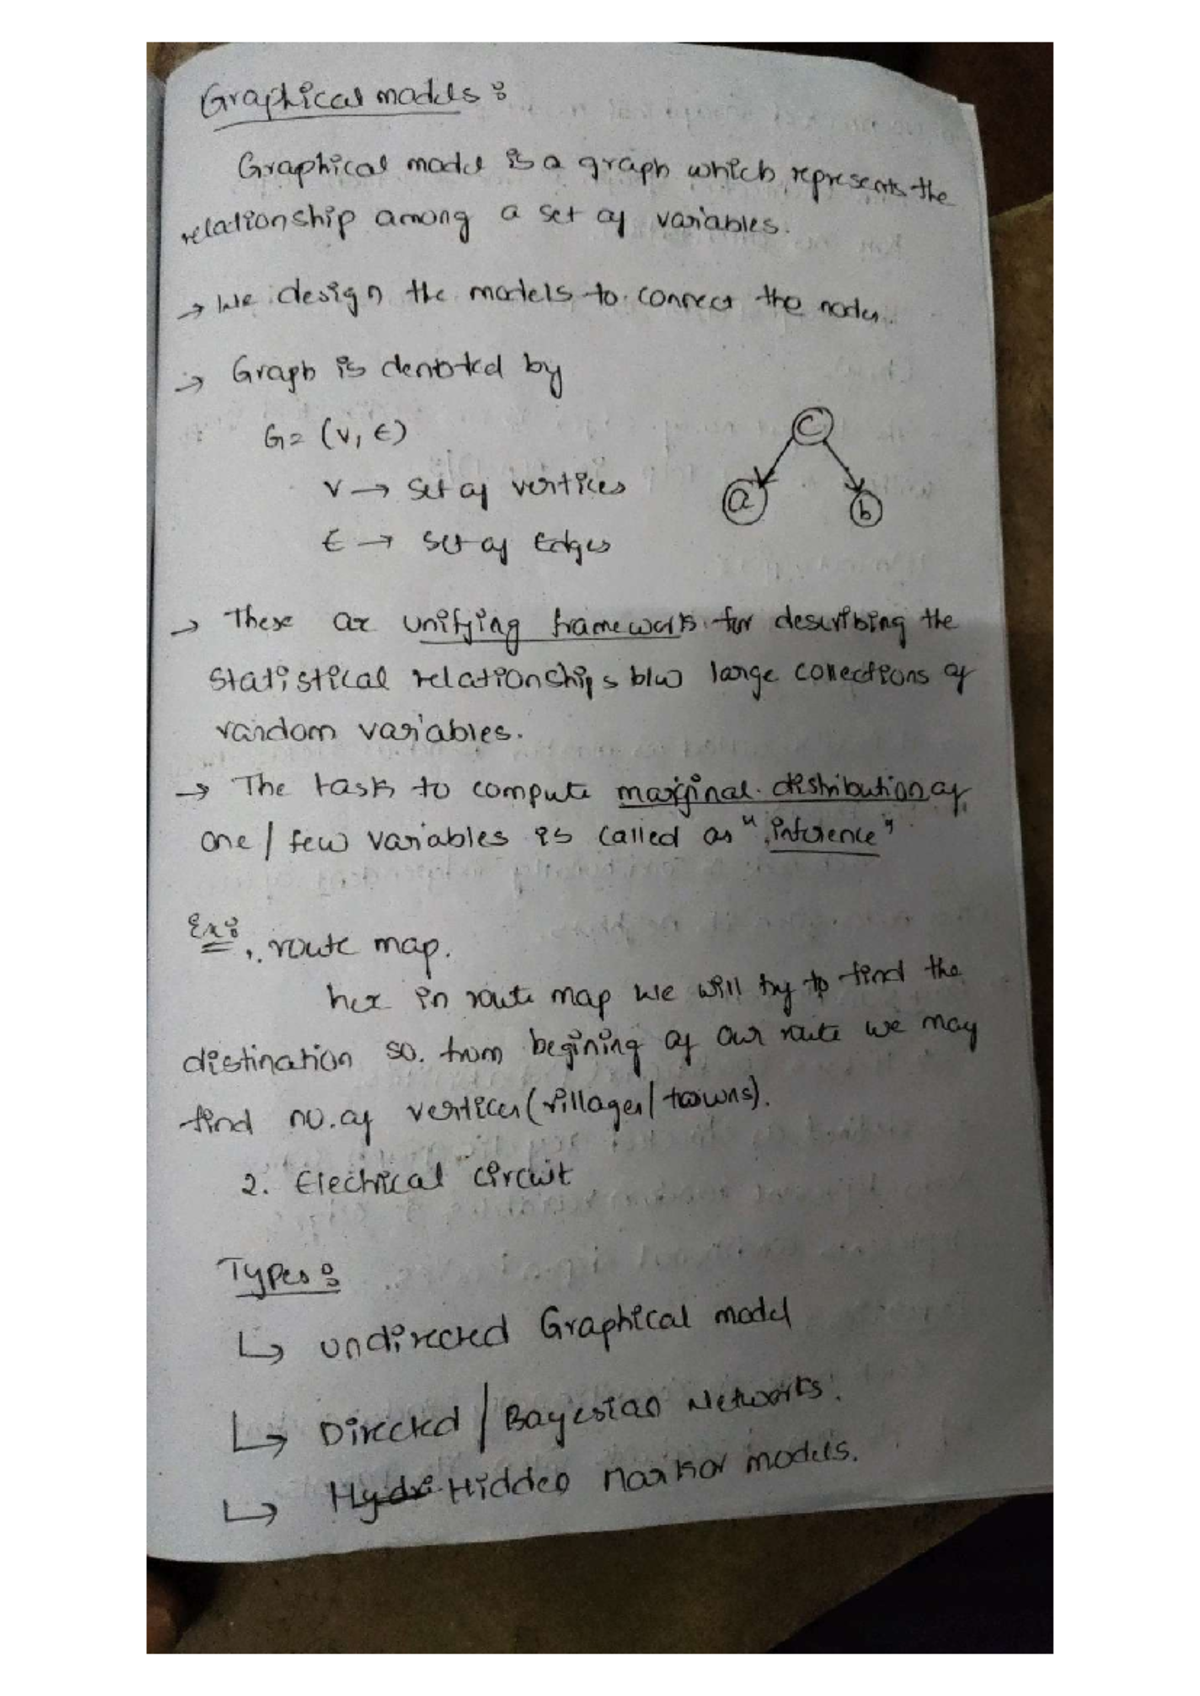 Graphical models :
Graphical model is a graph which represents the
relationship among a set of variables.
→ We design the models to connect the nodes.
→ Graph is denoted by
G = (V, E)
V → set of vertices
E → set of Edges
C
a
b
→ These are unifying frameworks for describing the
statistical relationships b/w large collections of
random variables.
→ The task to compute marginal distribution of
one / few variables is called as "inference"
Ex: 1. route map.
here in route map we will try to find the
distination so from begining of our route we may
find no. of vertices (villages / towns).
2. Electrical circuit
Types :
↳ undirected Graphical model
↳ Directed / Bayesian Networks.
↳ Hidden Markov models.